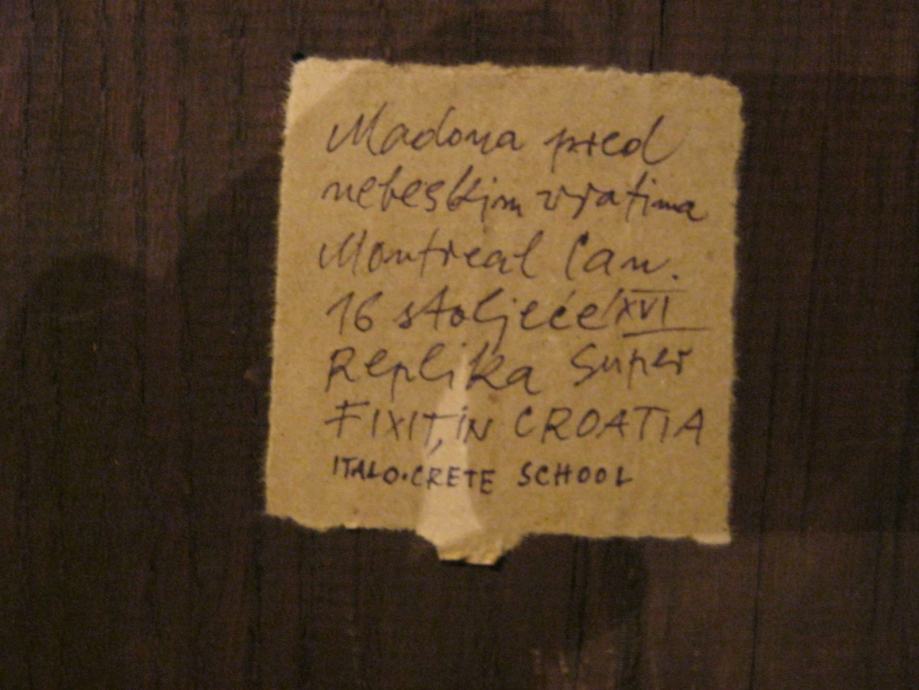 Madona pred
nebeskim vratima
Montreal Can.
16 stoljeće/XVI
Replika Super
FIXIT, IN CROATIA
ITALO-CRETE SCHOOL